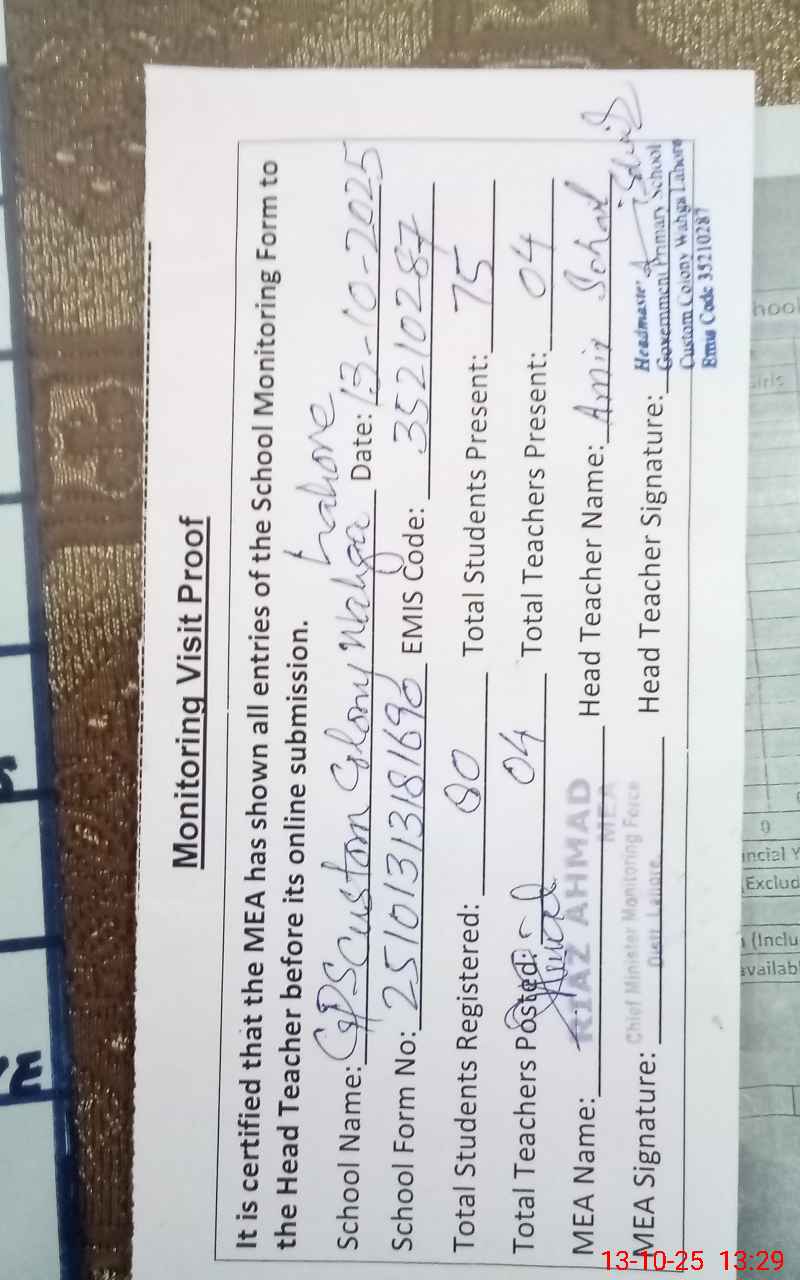 Monitoring Visit Proof
It is certified that the MEA has shown all entries of the School Monitoring Form to
the Head Teacher before its online submission.
School Name: GPS Custom Colony Wahga Lahore Date: 13-10-2025
School Form No: 25101313181690 EMIS Code: 35210287
Total Students Registered: 80 Total Students Present: 75
Total Teachers Posted: 04 Total Teachers Present: 04
MEA Name: RIAZ AHMAD Head Teacher Name: Amir Sohail
MEA
MEA Signature: Chief Minister Monitoring Force Head Teacher Signature:
Distt: Lahore
Headmaster
Government Primary School
Custom Colony Wahga Lahore
Emis Code 35210287
hool
irls
0
ncial Y
Exclud
(Inclu
availabl
13-10-25 13:29